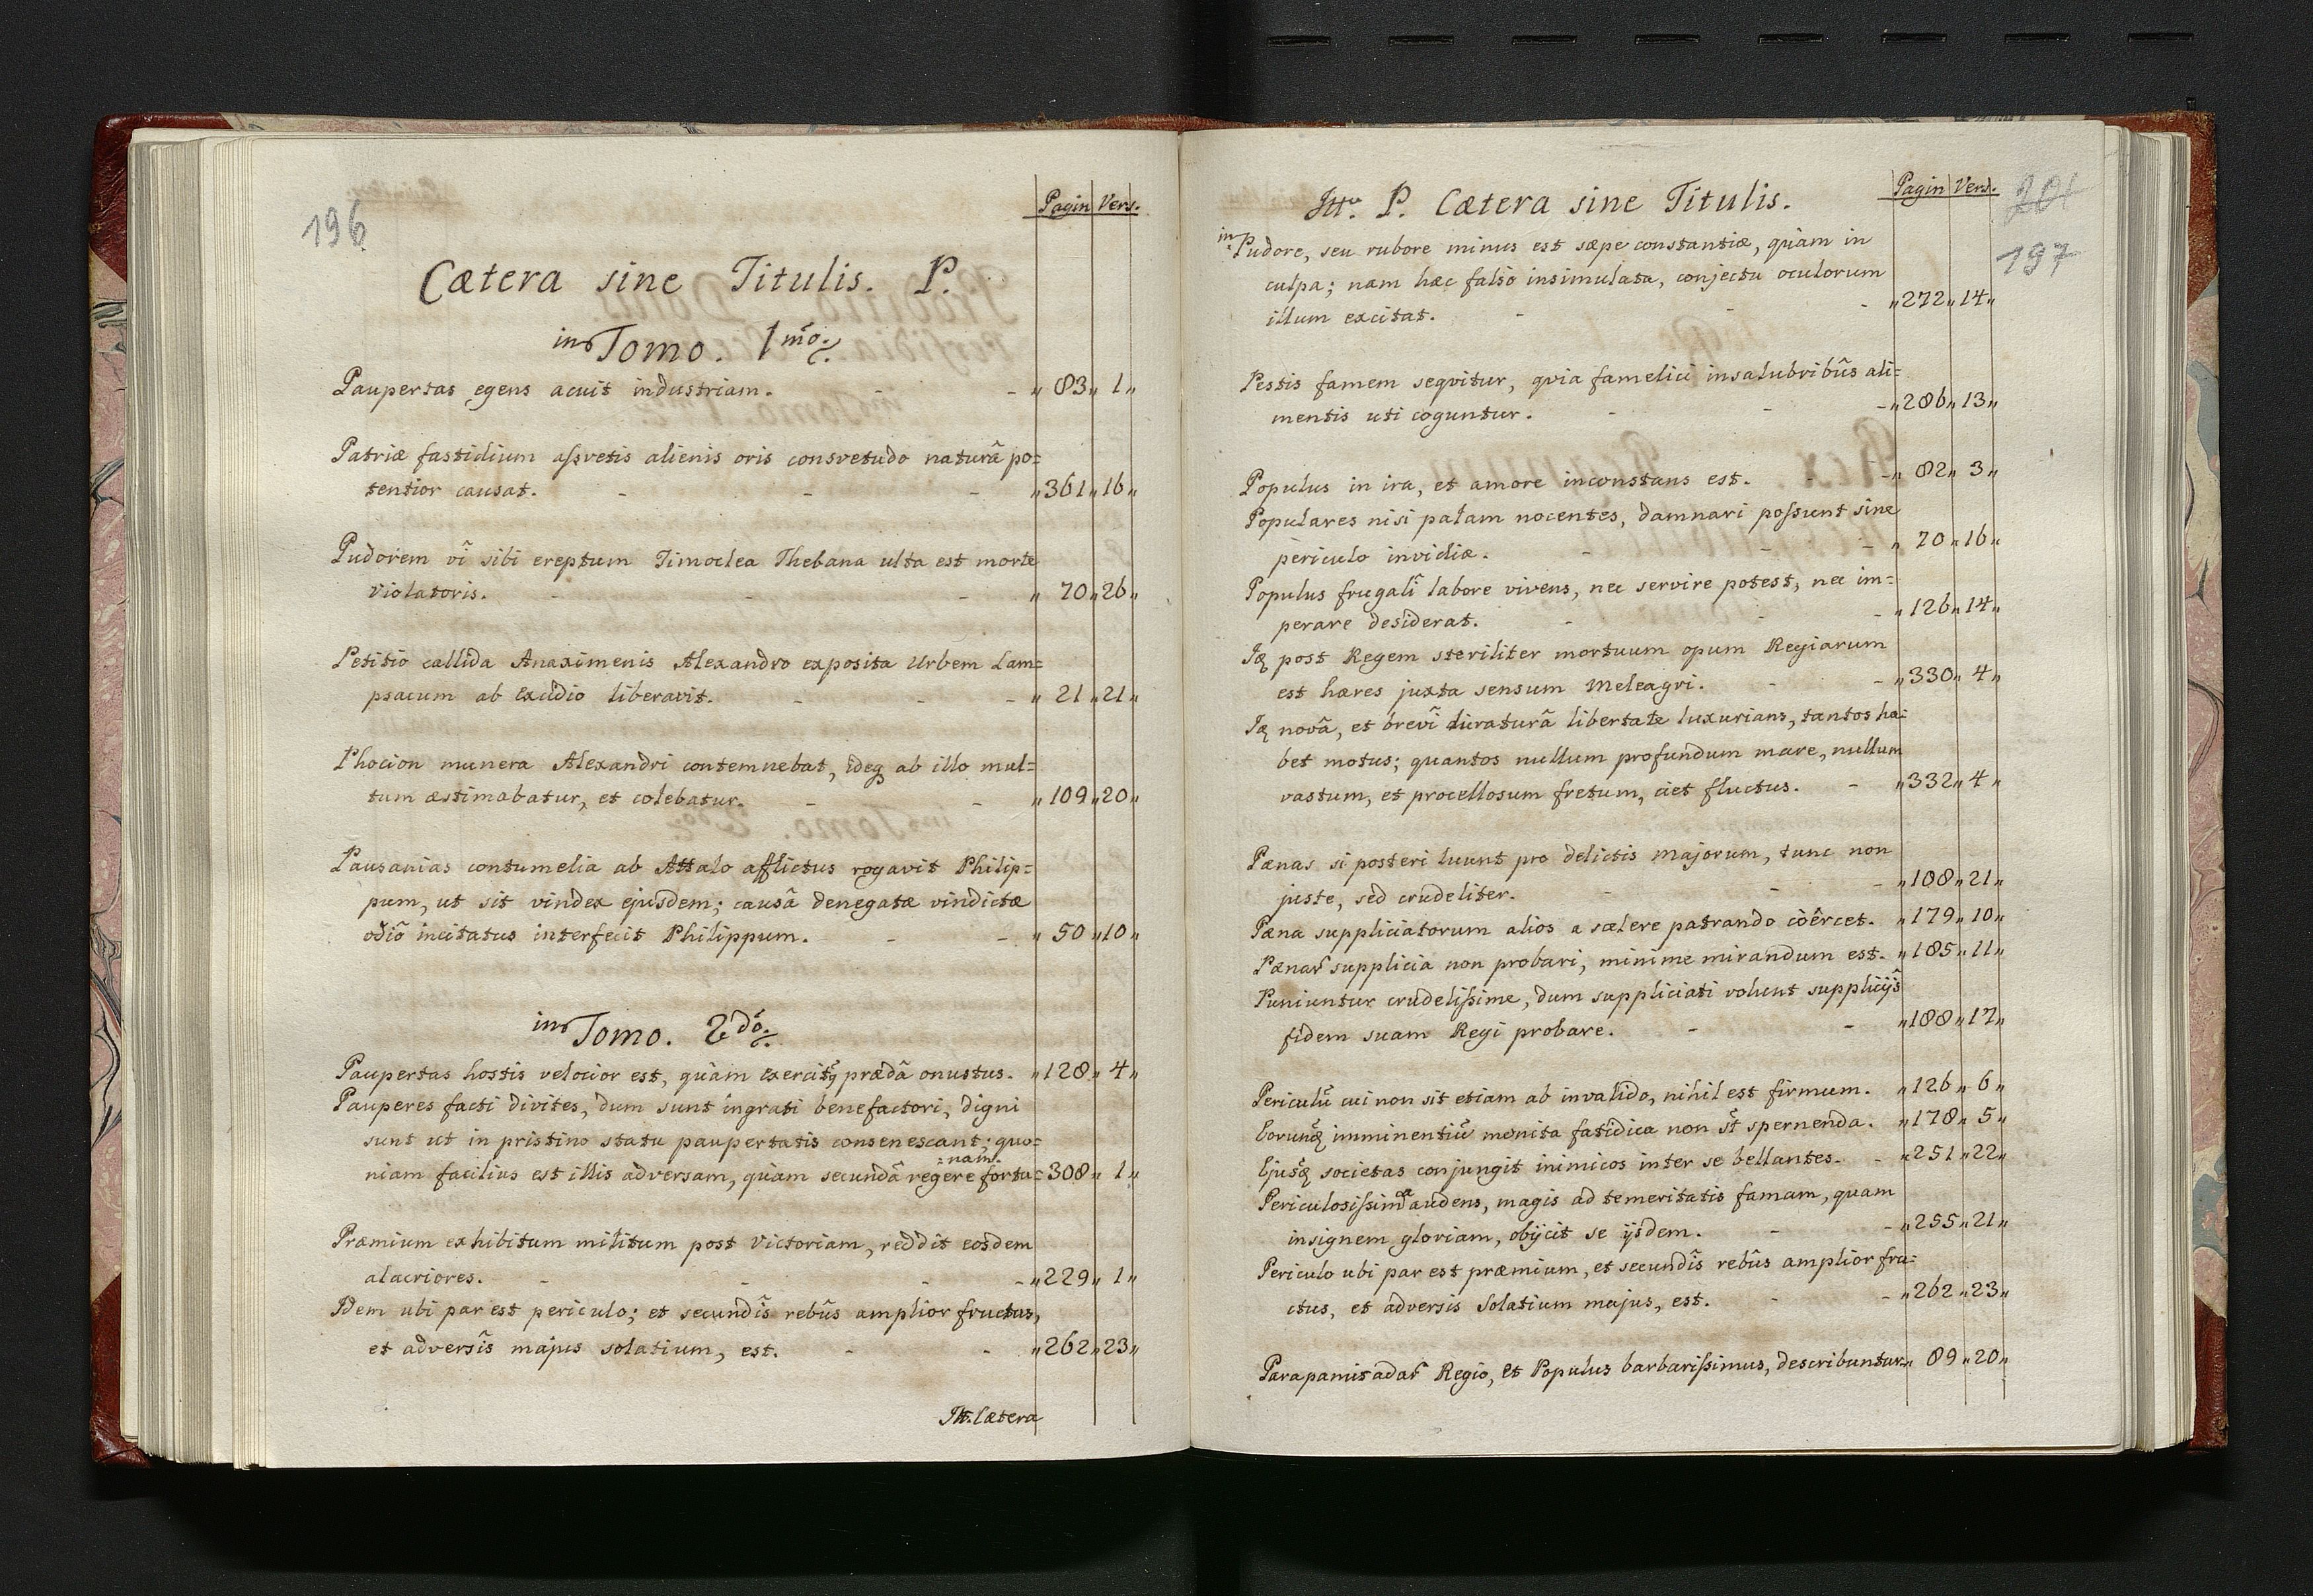 196
Pagin Vers.
Cætera sine Titulis. P.
in Tomo. 1mo.
Paupertas egens acuit industriam. - - „ 83 „ 1 „
Patriæ fastidium assvetis alienis oris consvetudo naturâ po=
tentior causat. - - - „ 361 „ 16 „
Pudorem vî sibi ereptum Timoclea Thebana ulta est morte
violatoris. - - - „ 70 „ 26 „
Petitio callida Anaximenis Alexandro exposita Urbem Lam=
psacum ab excidio liberavit. - - - „ 21 „ 21 „
Phocion munera Alexandri contemnebat, ideq ab illo mul=
tum æstimabatur, et colebatur. - - „ 109 „ 20 „
Pausanias contumelia ab Attalo afflictus rogavit Philip=
pum, ut sit vindex ejusdem; causâ denegatæ vindictæ
odiô incitatus interfecit Philippum. - - „ 50 „ 10 „
in Tomo. 2do.
Paupertas hostis velocior est, quàm exercitq prædâ onustus. „ 128 „ 4 „
Pauperes facti divites, dum sunt ingrati benefactori, digni
sunt ut in pristino statu paupertatis consenescant; quo=
=nam.
niam facilius est illis adversam, quàm secundã regere fortu= 308 „ 1 „
Præmium exhibitum militum post Victoriam, reddit eosdem
alacriores. - - - - „ 229 „ 1 „
Idem ubi par est periculo; et secundîs rebûs amplior fructus,
et adversîs majus solatium, est. - - „ 262 „ 23 „
Itt. Cætera
Itt. P. Cætera sine Titulis.
Pagin Vers.
201
197
in Pudore, seu rubore minus est sæpe constantiæ, quàm in
culpa; nam hæc falsò insimulata, conjectu oculorum
illum excitat. - - - „ 272 „ 14 „
Pestis famem seqvitur, qvia famelici insalubribûs ali=
mentis uti coguntur. - - - „ 286 „ 13 „
Populus in ira, et amore inconstans est. - - „ 82 „ 3 „
Populares nisi palam nocentes, damnari possunt sine
periculo invidiæ. - - - „ 70 „ 16 „
Populus frugali labore vivens, nec servire potest, nec im=
perare desiderat. - - - „ 126 „ 14 „
Iq post Regem steriliter mortuum opum Regiarum
est hæres juxta sensum Meleagri. - - „ 330 „ 4 „
Iq novâ, et brevî duraturâ libertate luxurians, tantos ha=
bet motus; quantos nullum profundum mare, nullum
vastum, et procellosum fretum, ciet fluctus. - „ 332 „ 4 „
Pænas si posteri luunt pro delictis majorum, tunc non
juste, sed crudeliter. - - - „ 108 „ 21 „
Pæna suppliciatorum alios a scelere patrando coêrcet. „ 179 „ 10 „
Pænar supplicia non probari, minime mirandum est. „ 185 „ 11 „
Puniuntur crudelissime, dum suppliciati volunt supplicijs
fidem suam Regi probare. - - „ 188 „ 17 „
Periculũ cui non sit etiam ab invalido, nihil est firmum. „ 126 „ 6 „
Eorunq imminentiũ monita fatidica non st spernenda. „ 178 „ 5 „
Ejusq societas conjungit inimicos inter se bellantes. - „ 251 „ 22 „
Periculosissima audens, magis ad temeritatis famam, quam
insignem gloriam, obijcit se ijsdem. - - „ 255 „ 21 „
Periculo ubi par est præmium, et secundîs rebûs amplior fru=
ctus, et adversis solatium majus, est. - - „ 262 „ 23 „
Parapamisadar Regio, et Populus barbarissimus, describuntur. „ 89 „ 20 „